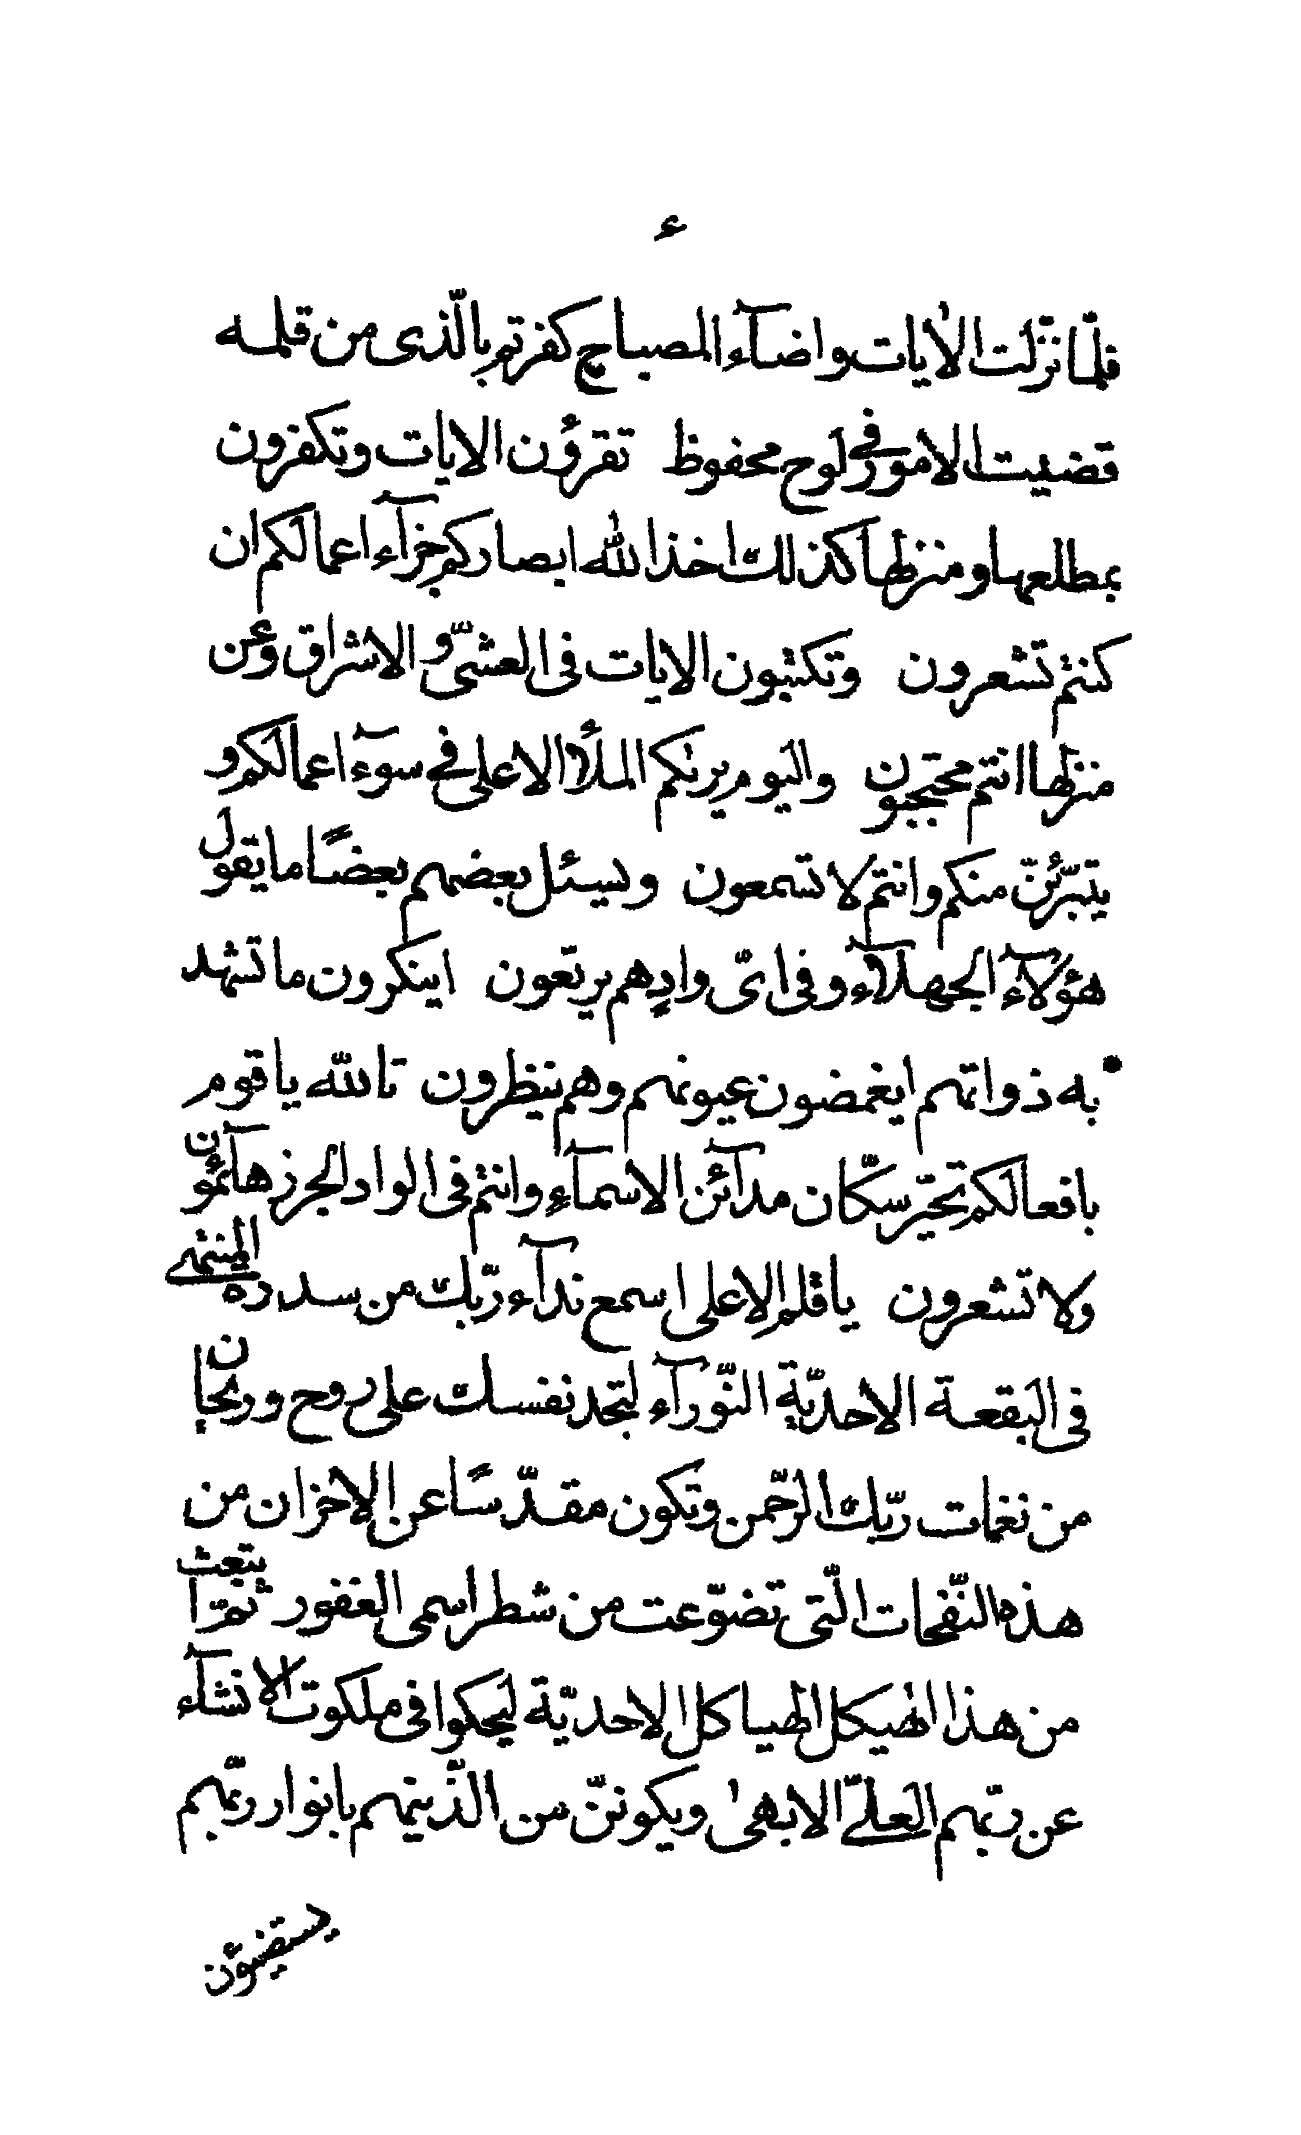 ٤
فلمّا نزّلت الاٰيات و اضآء المصباح كفرتم بالّذى من قلمه
قضيت الامور فى لوح محفوظ تقرؤن الايات و تكفرون
بمطلعها و منزلها كذلك اخذ الله ابصاركم جزآء اعمالكم ان
كنتم تشعرون و تكتبون الايات فى العشىّ و الاشراق و عن
منزلها انتم محتجبون و اليوم يريٰكم الملأ الاعلى فى سوٓء اعمالكم و
يتبرّئنّ منكم و انتم لا تسمعون و يسئل بعضهم بعضًا ما يقول
هؤلآء الجهلآء و فى اىّ وادٍ هم يرتعون اينكرون ما تشهد
به ذواتهم ايغمضون عيونهم و هم ينظرون تالله يا قوم
بافعالكم تحيّر سكّان مدآئن الاسمآء و انتم فى الواد الجرز هآئمون
و لا تشعرون يا قلم الاعلى اسمع ندآء ربّك من سدرة المنتهى
فى البقعة الاحديّة النّورآء لتجد نفسك على روح و ريحان
من نغمات ربّك الرّحمن و تكون مقدّسًا عن الاحزان من
هذه النّفحات الّتى تضوّعت من شطر اسمى الغفور ثمّ ابتعث
من هذا الهيكل الهياكل الاحديّة ليحكوا فى ملكوت الانشآء
عن ربّهم العلىّ الابهىٰ و يكوننّ من الّذينهم بانوار ربّهم
يستضيؤن